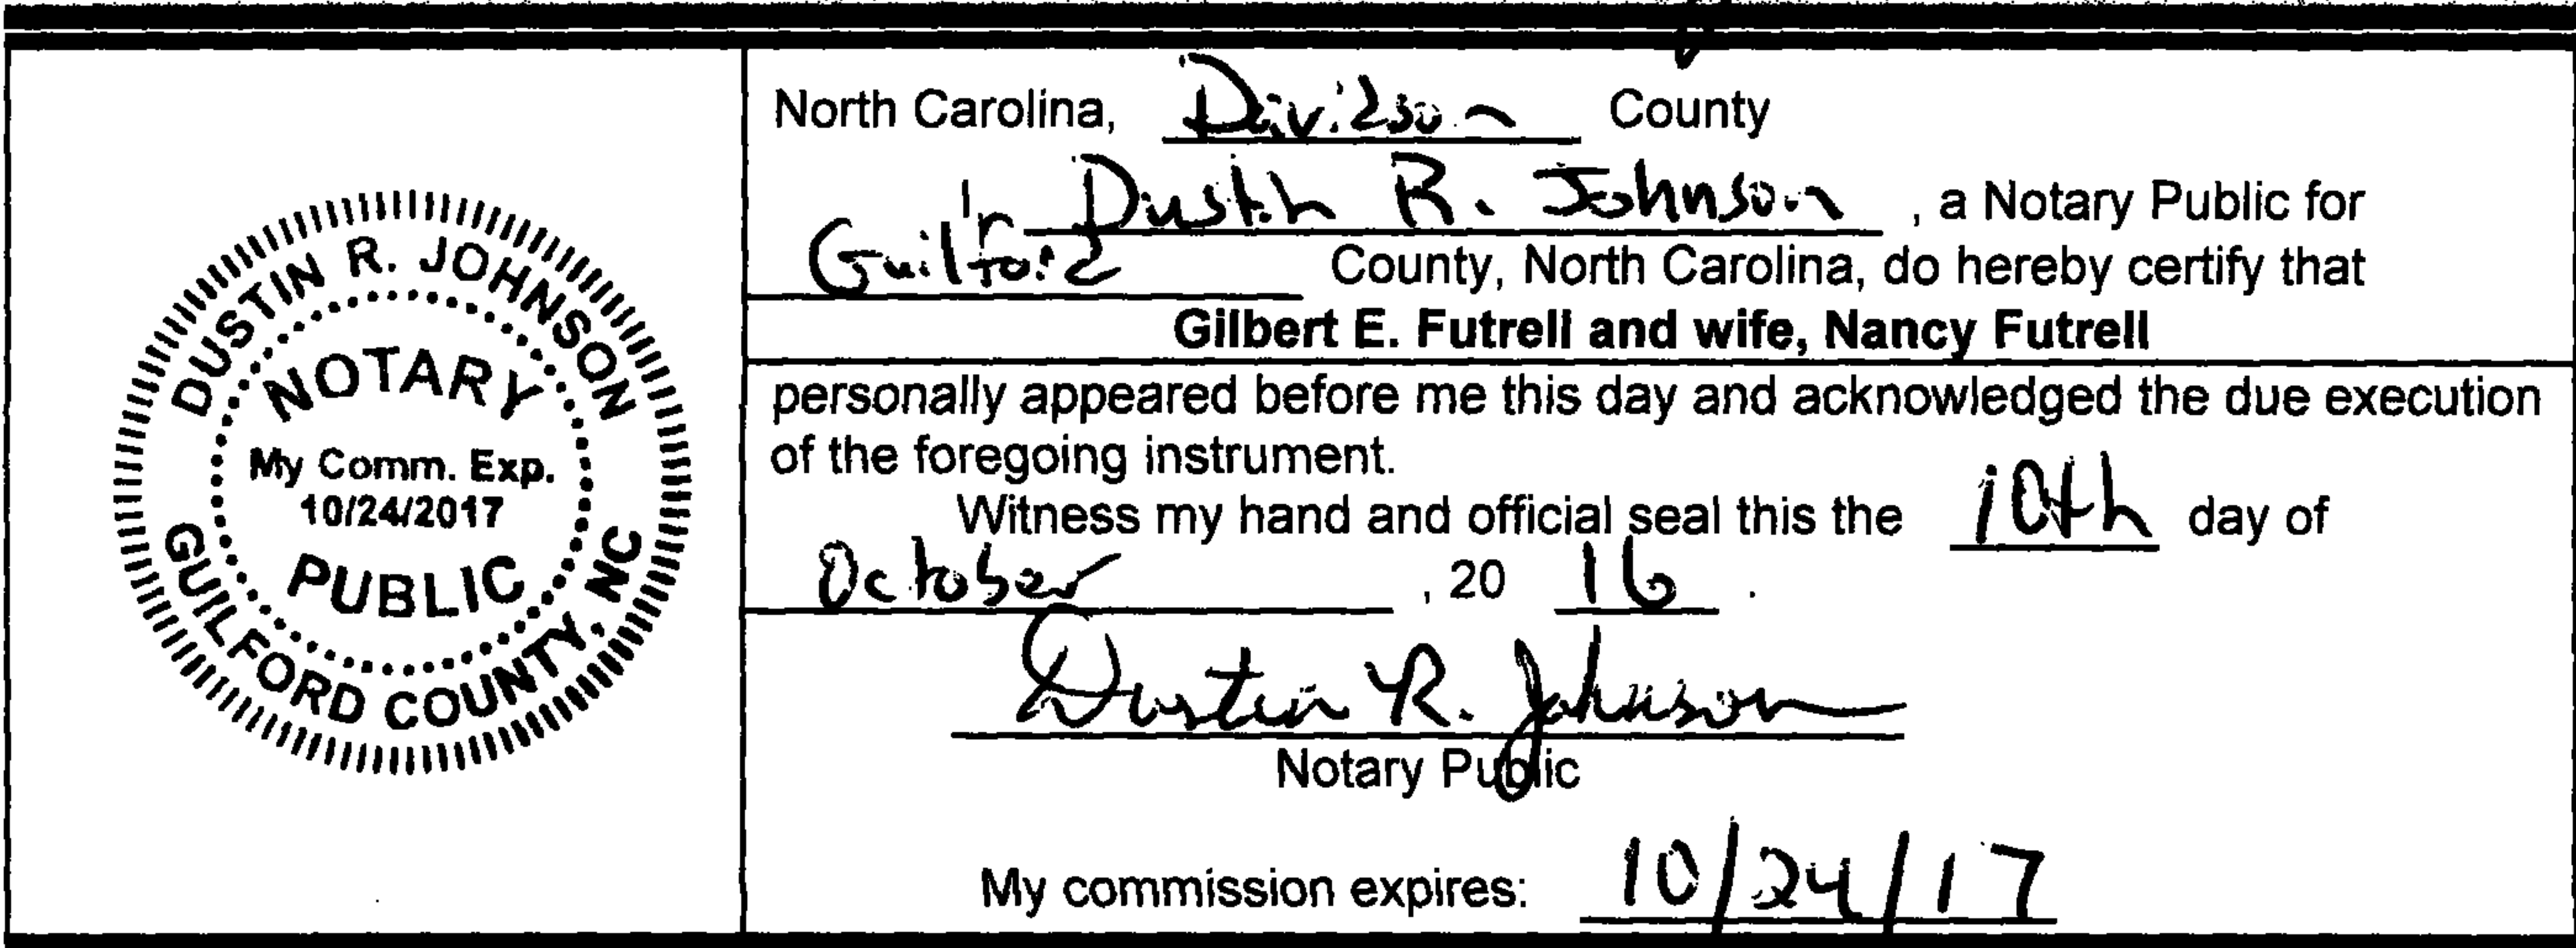 DUSTIN R. JOHNSON
NOTARY
My Comm. Exp.
10/24/2017
PUBLIC
GUILFORD COUNTY, NC
North Carolina, Davidson County
I, Dustin R. Johnson, a Notary Public for
Guilford County, North Carolina, do hereby certify that
Gilbert E. Futrell and wife, Nancy Futrell
personally appeared before me this day and acknowledged the due execution
of the foregoing instrument.
Witness my hand and official seal this the 10th day of
October, 20 16.
Dustin R. Johnson
Notary Public
My commission expires: 10/24/17